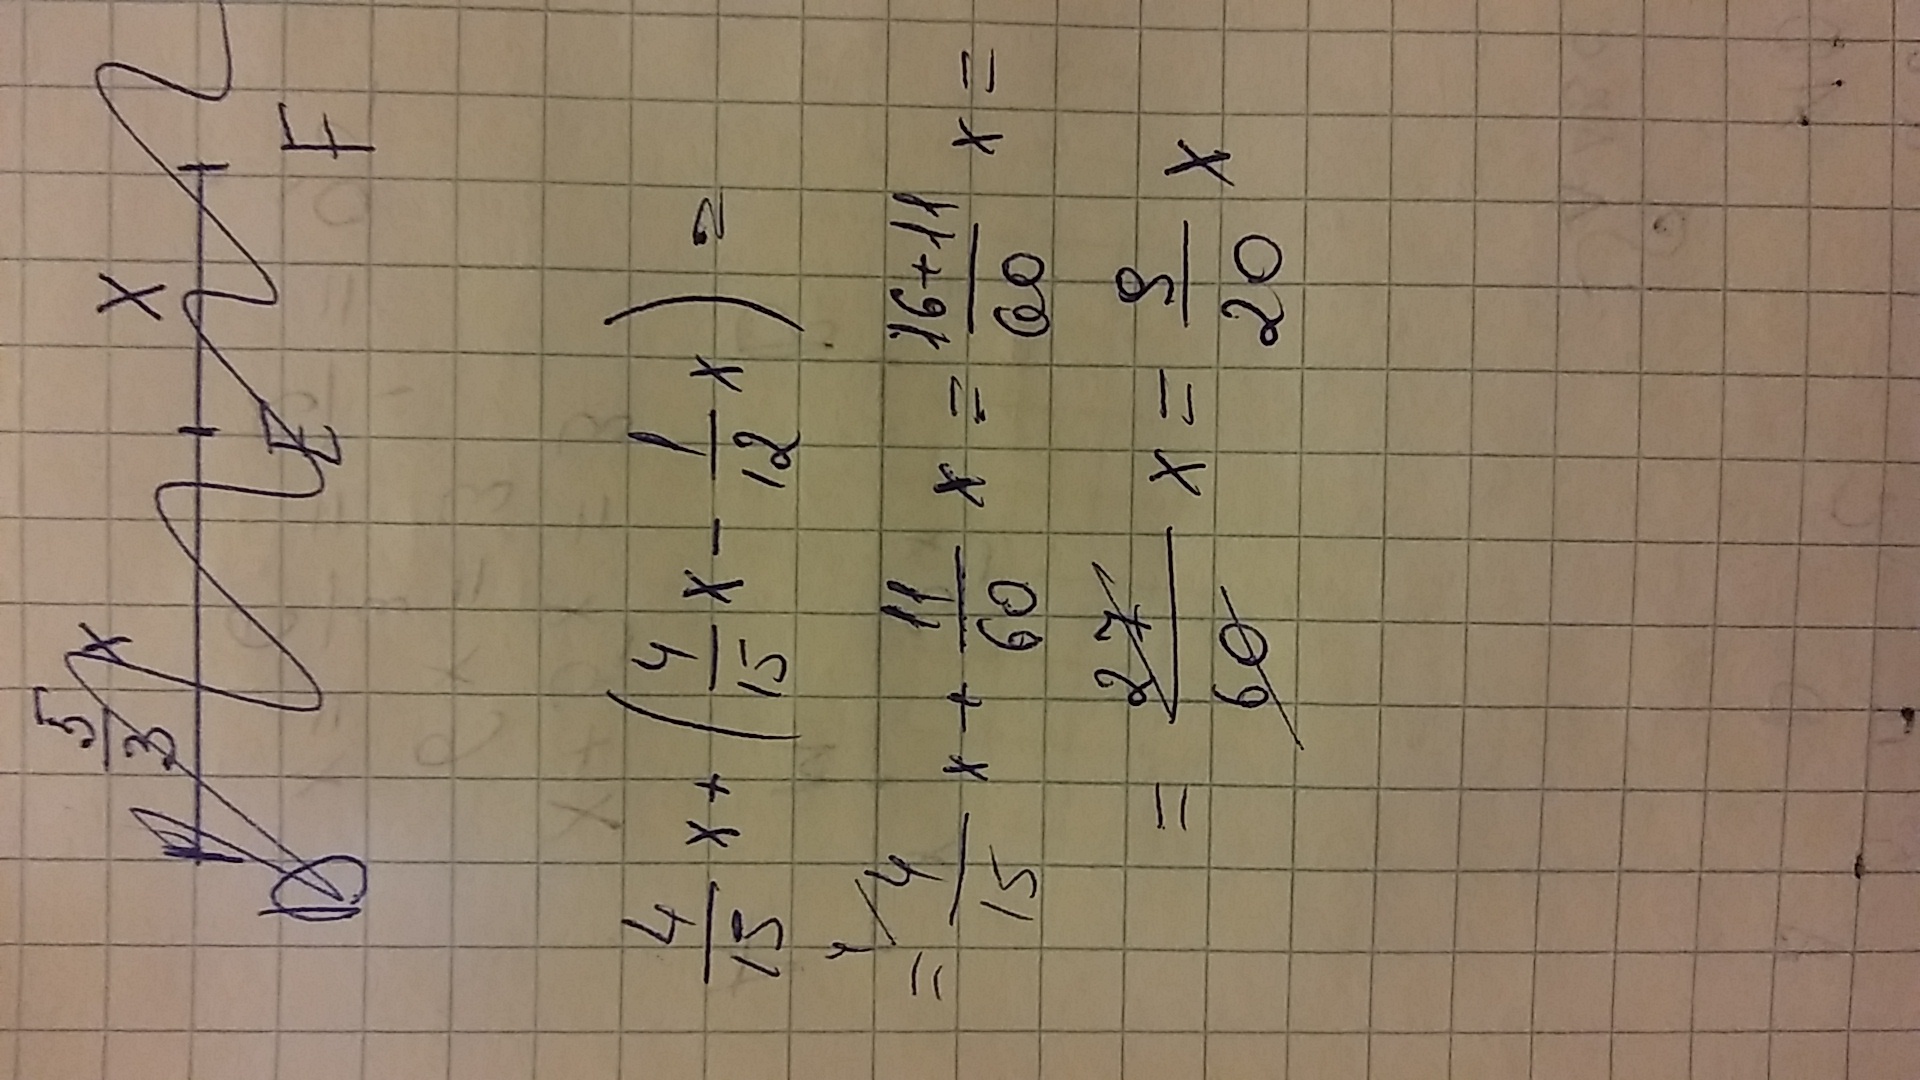 5/3 x X
D E F
4/15 x + (4/15 x - 1/12 x) =
= 4/15 x + 11/60 x = 16+11/60 x =
= 27/60 x = 9/20 x